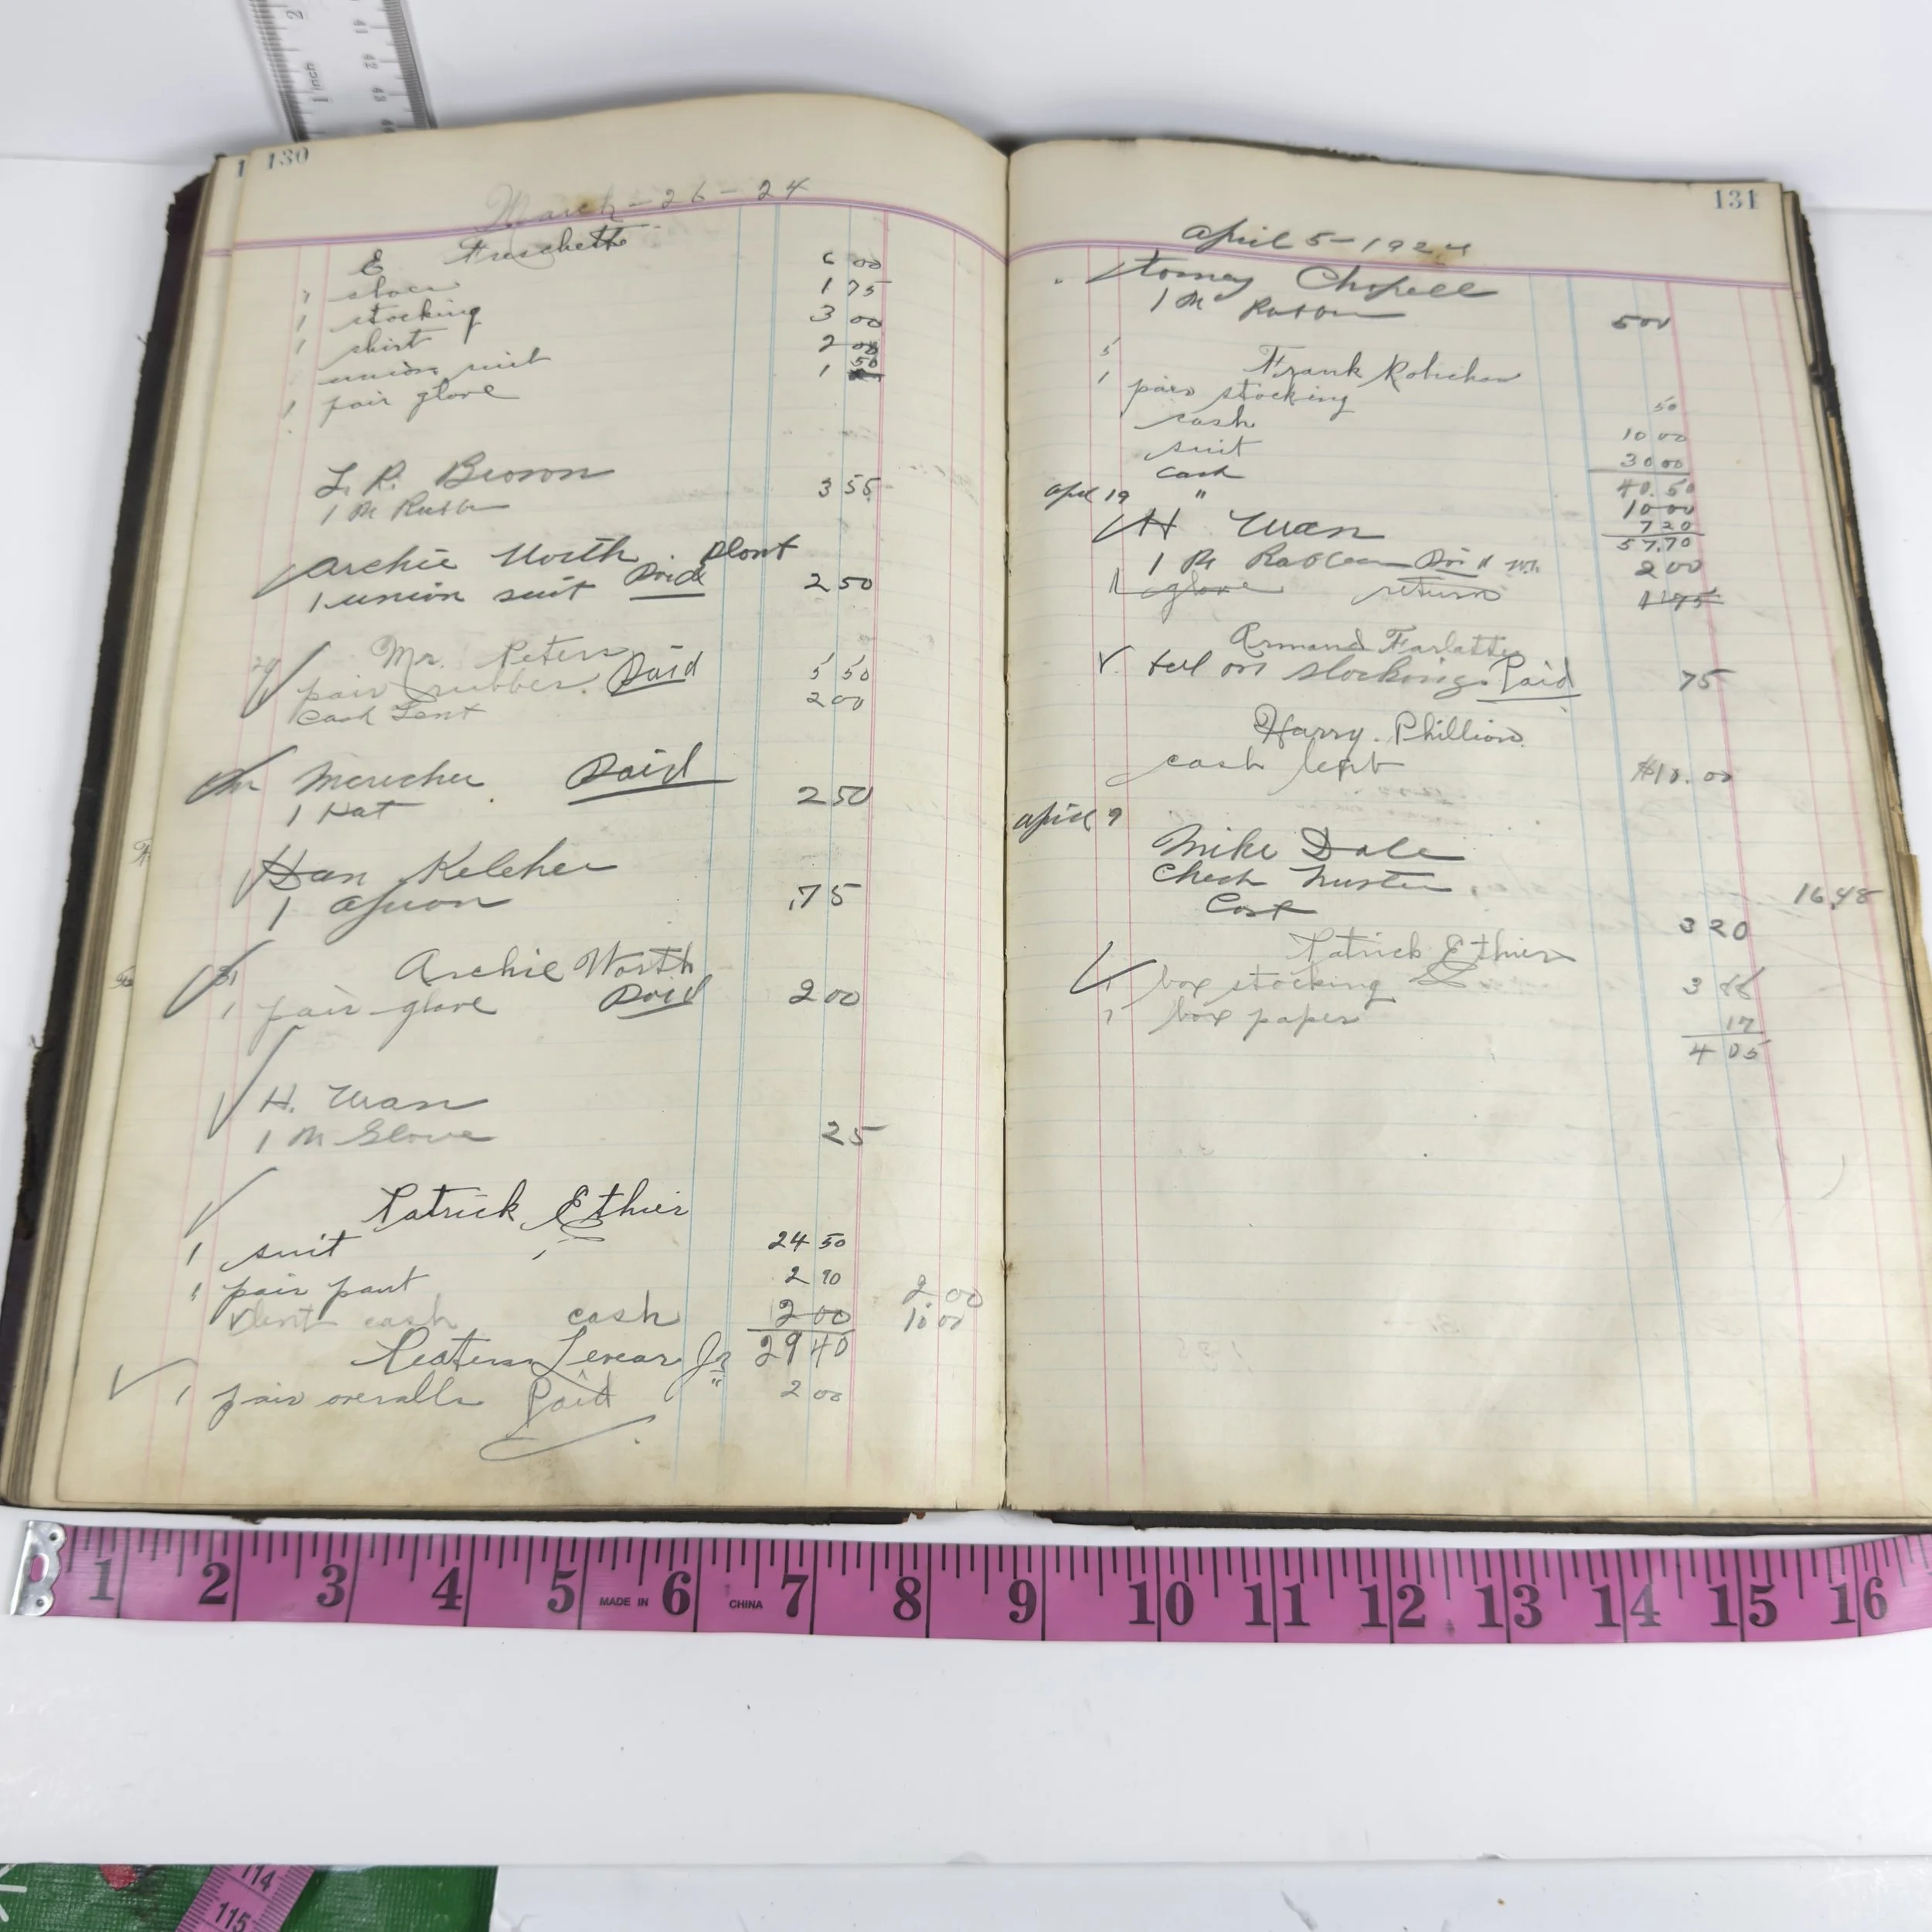 130
March - 26 - 24
E Freschette
1 shoes 6 00
1 stocking 1 75
1 shirt 3 00
union suit 2 00
1 pair glove 1 50
L. R. Brown
1 Pr Rubber 3 55
Archie North. Plant
1 union suit Paid 2 50
Mr. Peters
pair rubber. Paid 5 50
Cash Lent 2 00
Merecher Paid
1 Hat 2 50
Dan Keleher
1 apron .75
31 Archie Worth
1 pair glove Paid 2 00
H. Wan
1 Pr Glove 25
Patrick Ethier
1 suit 24 50
1 pair pant 2 90
Lent cash cash 2 00 2 00
29 40 10 00
Levear Jr
1 pair overalls Paid 2 00
131
April 5 - 1924
Chapell
1 Pr Rubber 5 00
Frank Robichaw
5 pairs stocking 50
1 cash 10 00
suit 30 00
cash 40.50
April 19 " 10 00
7 20
57.70
H Wan
1 Pr Rubber Paid 2 00
1 glove return 1 75
Armand Farlatte
stockings Paid 75
Harry. Phillion.
cash lent $10.00
April 9
Mike Dale
Check 16.48
Cost 3 20
Patrick Ethier
1 box stocking 3 88
1 box paper 17
4 05
1 inch
2
41
42
43
44
1 2 3 4 5 MADE IN 6 CHINA 7 8 9 10 11 12 13 14 15 16
114
115